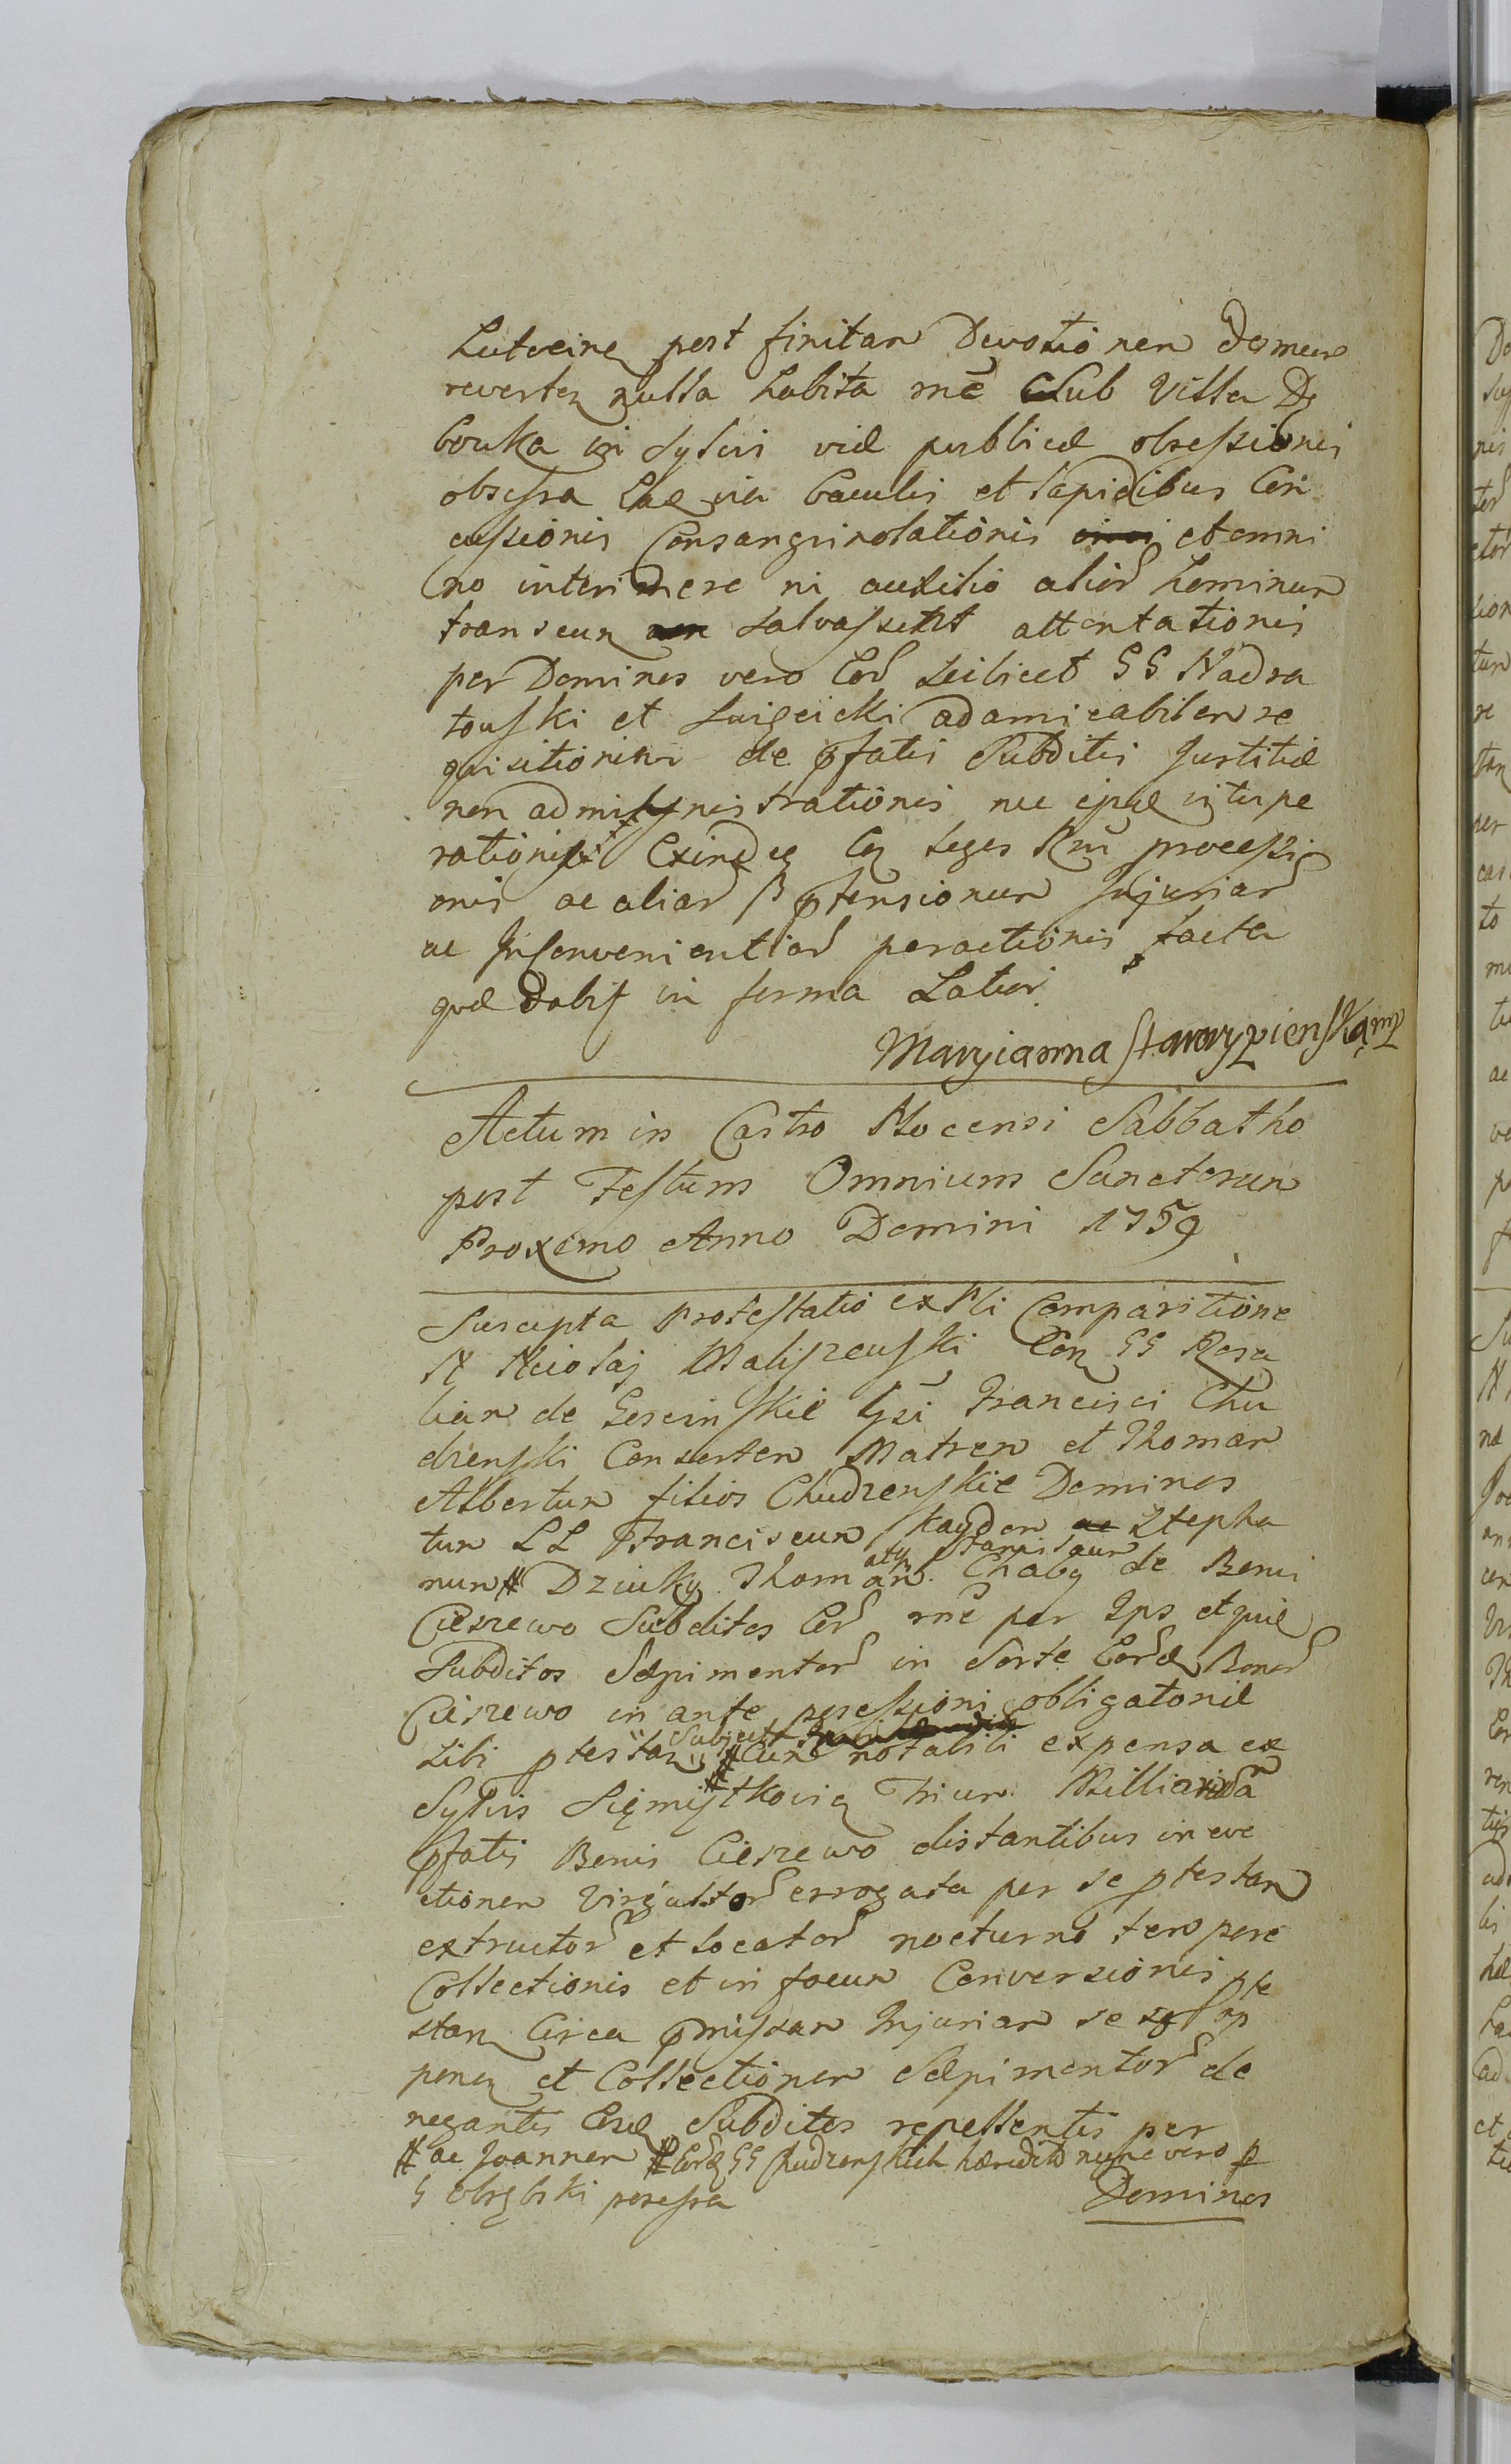 post finitam Devotionem domum
reverten nulla habita mẽ Sub Villa Dę
bouka in Sylvis viæ publicæ obsessionis
obsessa eaq via baculis et lapidibus Con
cussionis Consangvinolationis et omni
no interimere ni auxilio alior hominum
transeun salvassent attentationis
per Dominos vero Eor scilicet GG Nadra
touski et ad amicabilem re
quisitionem de pfatis Subditis Justitiæ
non administrationis nec ejusd intepe
rationis Exindeq Con leges Rñi processi
onis ac aliar ß ptensionum Injuriar
ac Inconvenientiar peractionis facta
quæ dabit in forma Latiori
Maryianna Starorypienska mp
Actum in Castro Plocensi Sabbatho
post Festum Omnium Sanctorum
Proximo Anno Domini 1759
Suscepta Protestatio ex Pli Comparitione
N Nicolaj Maliszewski Con GG Rosa
liam de Gescinskie Gsi Francisci Chu
dzenski Consortem Matrem et Thomam
Albertum filios Chudzenskie Dominos
tum LL Franciscum Kaydon Stepha
num # Dziuky Thomam atq Stanislaum Chaby de Bonis
Cieszewo Subditos Eor mẽ per Ips et præ
Subditos Sæpimentor in Sorte Eord Bonor
Cieszewo in ante possessioni obligatoriæ
sibi ptestan Subject # Cum notabili expensa ex
Sylvis trium Milliarium a
pfatis Bonis Cieszewo distantibus in eve
ctionem Virgultor errogata per se ptestan
extructor et locator nocturno tempore
Collectionis et in focum Conversionis pte
stan Circa pmissam Injuriam se op
ponen et Collectionem Sæpimentor de
negantis Eosd Subditos repellentis per
# ac Joannem # Eord GG Chudzenskich hæredit nunc vero p
G Obrębski possessa Dominos